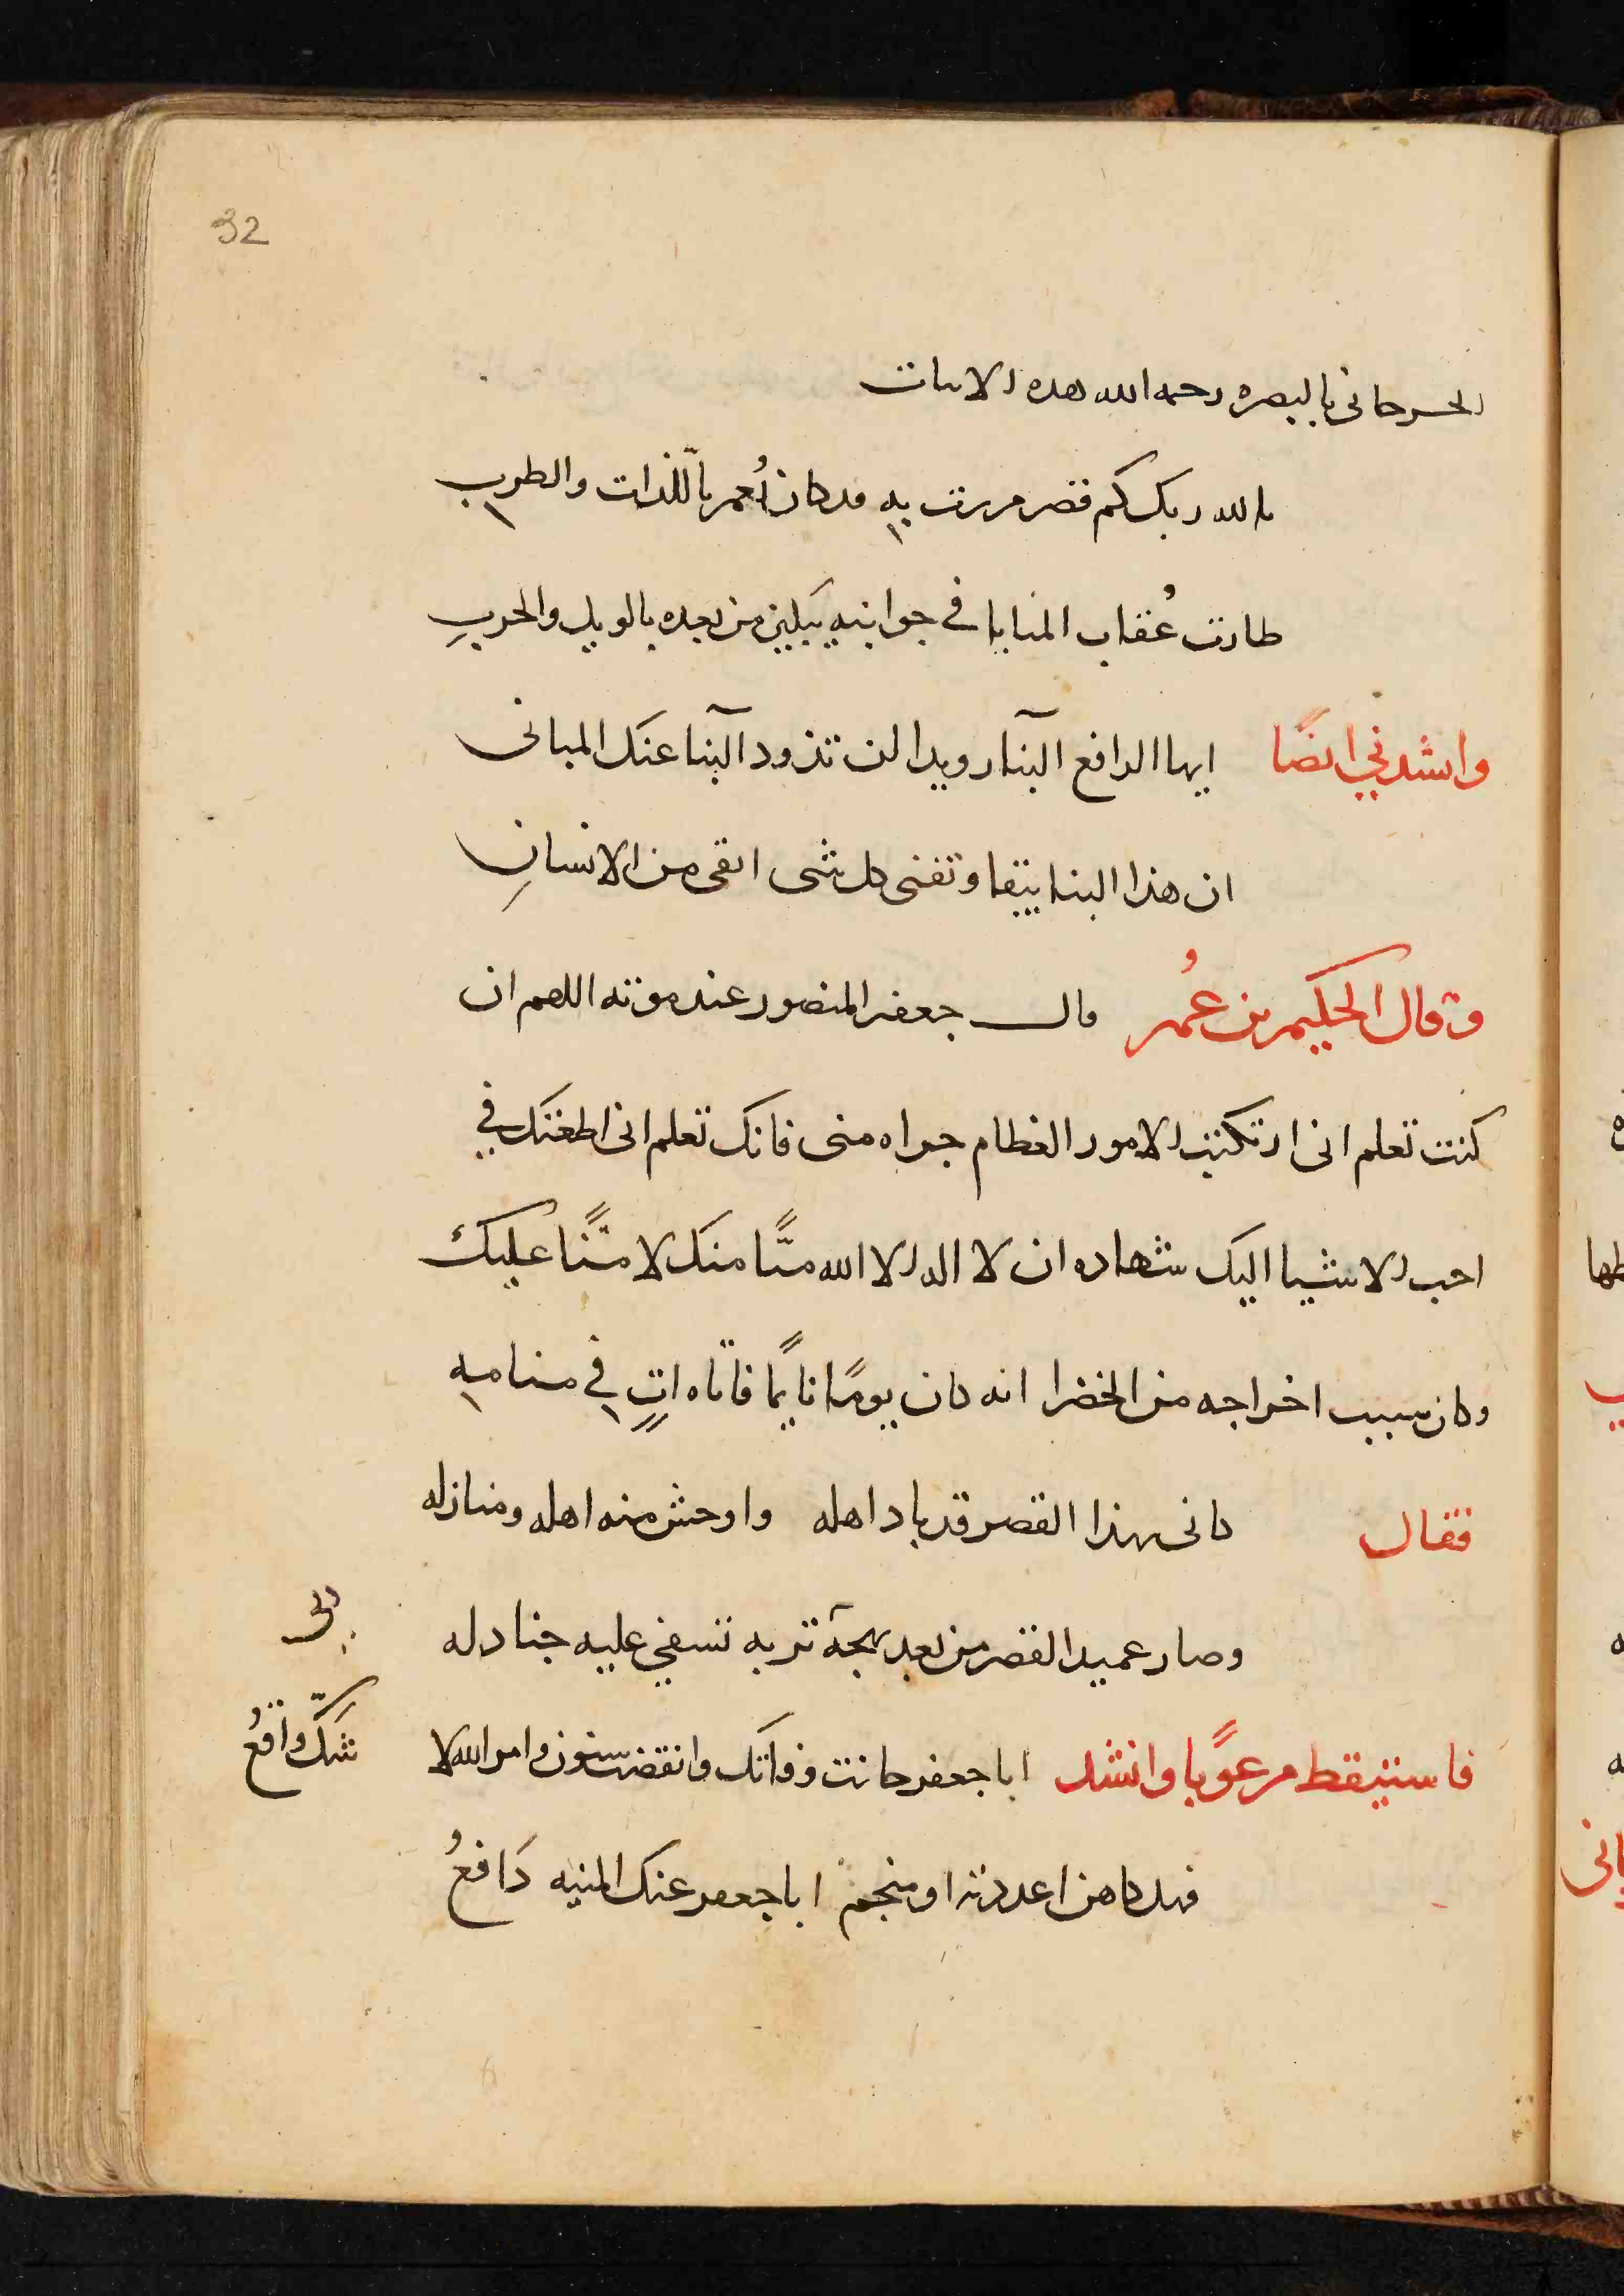 32
الحرحانى بالبصره رحمه الله هده الابيات
بالله ربك كم قصر مررت بهِ قد كان اُعمر باللّذات والطربِ
طارت عُقاب المنايا في جوانبه يبكين من بعده بالويل والحربِ
وانشدني ايضًا ايها الرافع البنآ رويدا لن تذود البنآ عنك المبانى
ان هذا البنا يبقا وتفنى كل شى ابقى من الانسانِ
وقال الحكيم بن عُمر قال جعفر المنصور عند موته اللهم ان
كنت تعلم انى ارتكبت الامور العظام جراه منى فانك تعلم انى اطعتك في
احب الاشيا اليك شهاده ان لا اله الا الله منًّا منك لا منًّا عليك
وكان سبب اخراجه من الخضرا انه كان يومًا نايمًا فاتاه اتٍ في منامهِ
فقال كانى بهذا القصر قد باد اهله واوحش منه اهله ومنازله
وصار عميد القصر من بعد بهجة تربه تسفي عليه جنادله
فاستيقط مرعوبًا وانشد ابا جعفر حانت وفاتك وانقضت سنون وامر الله لا شكّ واقعُ
فهل كاهن اعددته او منجم ابا جعفر عنك المنيه دَافعُ